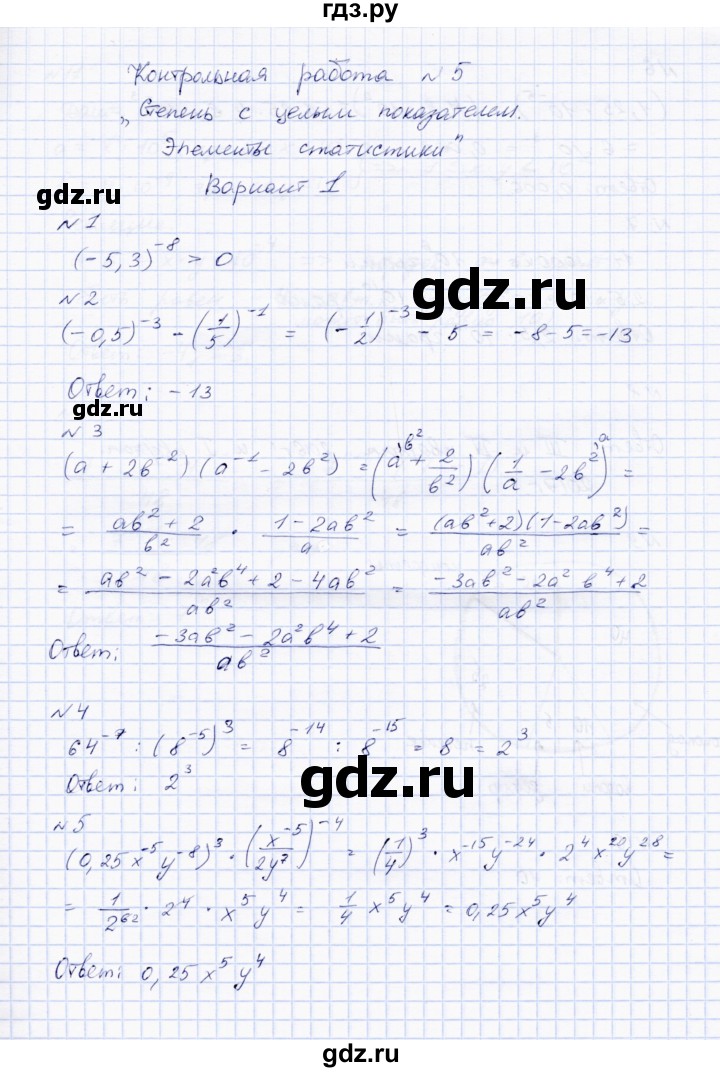 гдз.ру
Контрольная работа №5
„Степень с целым показателем.
Элементы статистики"
Вариант 1
gdz.ru
№1
(-5,3)^{-8} > 0
gdz.ru
№2
(-0,5)^{-3} - (1/5)^{-1} = (-1/2)^{-3} - 5 = -8-5=-13
Ответ: -13
gdz.ru
№3
(a + 2b^{-2}) (a^{-1} - 2b^2) = (a^{\b^2} + 2/b^2) (1/a - 2b^2^{\a}) =
= (ab^2 + 2)/b^2 · (1-2ab^2)/a = (ab^2+2)(1-2ab^2)/ab^2 =
= (ab^2 - 2a^2b^4 + 2 - 4ab^2)/ab^2 = (-3ab^2 - 2a^2 b^4 + 2)/ab^2
Ответ: (-3ab^2 - 2a^2b^4 + 2)/ab^2
№4
64^{-7} : (8^{-5})^3 = 8^{-14} : 8^{-15} = 8 = 2^3
gdz.ru
Ответ: 2^3
№5
(0,25x^{-5}y^{-8})^3 · (x^{-5}/2y^7)^{-4} = (1/4)^3 · x^{-15}y^{-24} · 2^4 x^{20}y^{28} =
= 1/2^{62} · 2^4 · x^5 y^4 = 1/4 x^5 y^4 = 0,25x^5y^4
Ответ: 0,25x^5y^4
gdz.ru